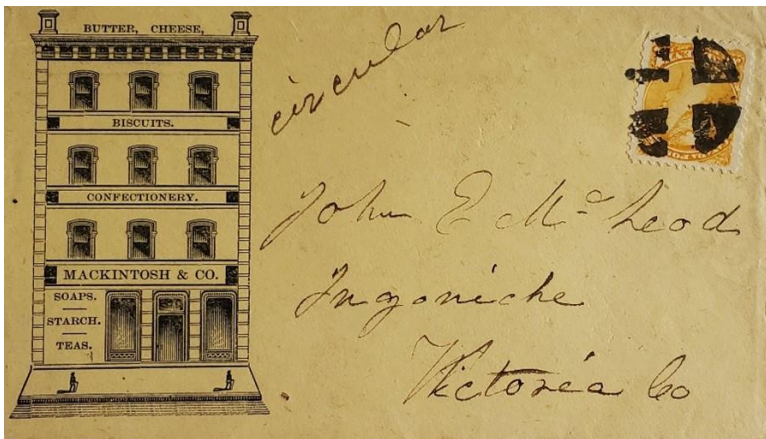 BUTTER, CHEESE,
BISCUITS.
CONFECTIONERY.
MACKINTOSH & CO.
SOAPS.
STARCH.
TEAS.
circular
John E McLeod
Ingoniche
Victoria Co